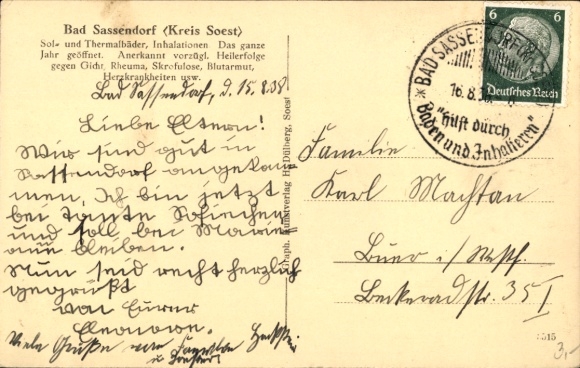 Bad Sassendorf (Kreis Soest)
Sol- und Thermalbäder, Inhalationen Das ganze
Jahr geöffnet. Anerkannt vorzügl. Heilerfolge
gegen Gicht, Rheuma, Skrofulose, Blutarmut,
Herzkrankheiten usw.
Bad Sassendorf, d. 15.8.38
Liebe Eltern!
Wir sind gut in
Sassendorf angekom
men, Ich bin jetzt
bei Tante
und soll bei
bleiben.
Nun seid recht herzlich
gegrüßt
von Eurer
Eleonore.
Viele Grüße von Familie
u.
Graph. Kunstverlag H. Dülberg, Soest
6 6
Deutsches Reich
BAD SASSENDORF
16.8.
"hilft durch
Baden und Inhalieren"
Familie
Karl Machtan
Buer i/Westf.
Beckeradstr. 35 I
3,-